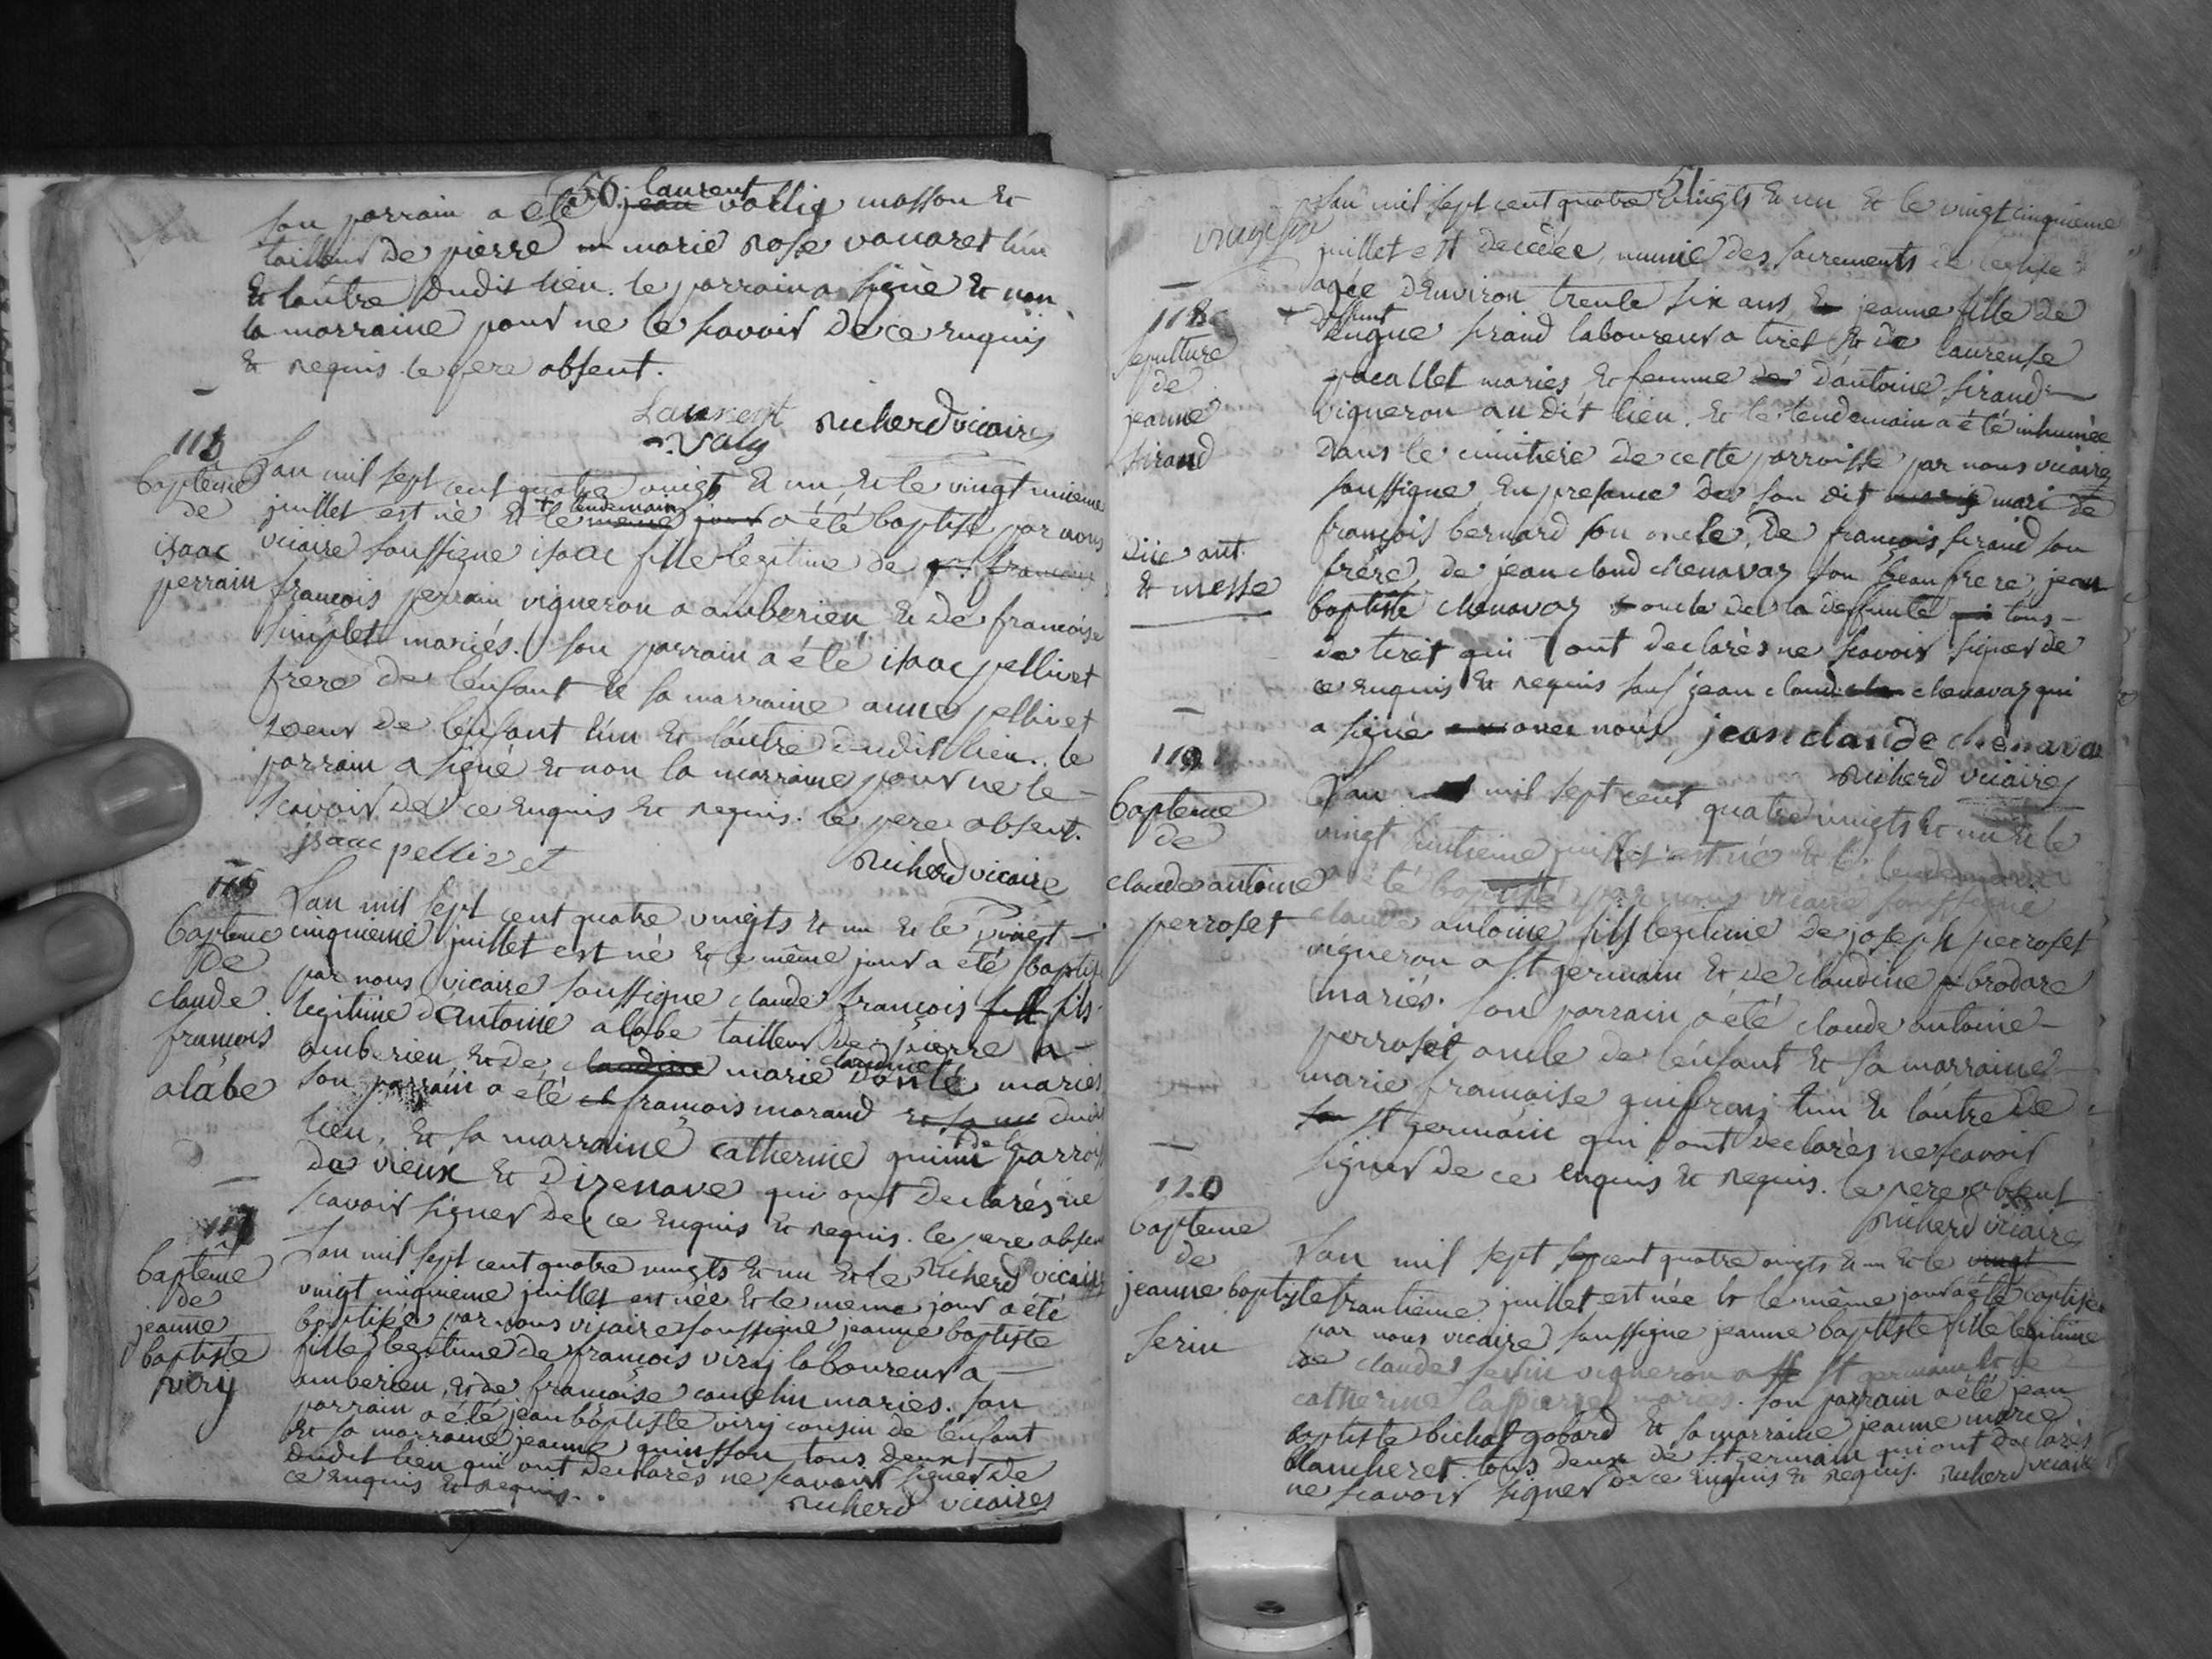 50.
son parrain a été jean laurent vallig masson et
tailleur de pierre marie rose vouaret l'un
et l'autre dudit lieu. le parrain a signé et non
la marraine pour ne le scavoir de ce enquis
et requis. le pere absent.
Laurent Valig
richerd vicaire
115
baptême
de
isaac
perrain
L'an mil sept cent quatre vingts et un et le vingt unieme
juillet est né et le même jour + lendemain a été baptisé par nous
vicaire soussigné isaac fille legitime de françois
françois perrain vigneron a amberieu et de françoise
simplet mariés. son parrain a été isaac pellivet
frere de l'enfant et sa marraine anne pellivet
soeur de l'enfant l'un et l'autre dudit lieu. le
parrain a signé et non la marraine pour ne le
scavoir de ce enquis et requis. le pere absent.
jsaac pellivet
richerd vicaire
116
baptême
de
claude
françois
alabe
L'an mil sept cent quatre vingts et un et le vingt
cinquieme juillet est né et le même jour a été baptisé
par nous vicaire soussigné claude françois fill fils
legitime d'antoine alabe tailleur de pierre a
amberieu et de claudine marie claudine donté mariés
son parrain a été françois morand et sa ma dudit
lieu. et sa marraine catherine quinin de la parroisse
de vieux et d'izenave qui ont declarés ne
scavoir signer de ce enquis et requis. le pere absent
richerd vicaire
117
baptême
de
jeanne
baptiste
viry
L'an mil sept cent quatre vingts et un et le
vingt cinquieme juillet est née et le meme jour a été
baptisée par nous vicaire soussigné jeanne baptiste
fille legitime de françois viry laboureur a
amberieu, et de françoise camelin mariés. son
parrain a été jean baptiste viry cousin de l'enfant
et sa marraine jeanne quinsson tous deux
dudit lieu qui ont declarés ne scavoir signer de
ce enquis et requis.
richerd vicaire
51
L'an mil sept cent quatre vingts et un et le vingt cinquieme
juillet est decedée, munie des sacrements de l'eglise
agée d'environ trente six ans, jeanne fille de
+ deffunt eugne sirand laboureur a tiret et de laurense
pacallet mariés et femme de d'antoine sirand
vigneron au dit lieu. et le lendemain a été inhumée
dans le cimitiere de cette parroisse par nous vicaire
soussigné en presence de son dit mari de
françois bernard son oncle, de françois sirand son
frere, de jean claud chenavaz son beau frere, jean
baptiste chenavaz oncle de la deffunte tous
de tiret qui ont declarés ne scavoir signer de
ce enquis et requis sauf jean claud chenavaz qui
a signé avec nous jean claude chenavaz
richerd vicaire
118
sepulture
de
jeanne
sirand
& messe
119
baptême
de
claude antoine
perroset
L'an mil sept cent quatre vingts et un et le
vingt huitieme juillet est né et le lendemain
a été baptisé par nous vicaire soussigné
claude antoine fils legitime de joseph perroset
vigneron a st germain et de claudine brodare
mariés. son parrain a été claude antoine
perroset, oncle de l'enfant et sa marraine
marie françoise guifray l'un et l'autre de
st germain qui ont declarés ne scavoir
signer de ce enquis et requis. le pere absent
richerd vicaire
120
baptême
de
jeanne baptiste
serin
L'an mil sept cent quatre vingts et un et le vingt
trantieme juillet est née et le même jour a été baptisée
par nous vicaire soussigné jeanne baptiste fille legitime
de claude serin vigneron a st germain et de
catherine lapierre mariés. son parrain a été jean
baptiste bichat gobard et sa marraine jeanne marie
blancheret tous deux de st germain qui ont declarés
ne scavoir signer de ce enquis et requis. richerd vicaire